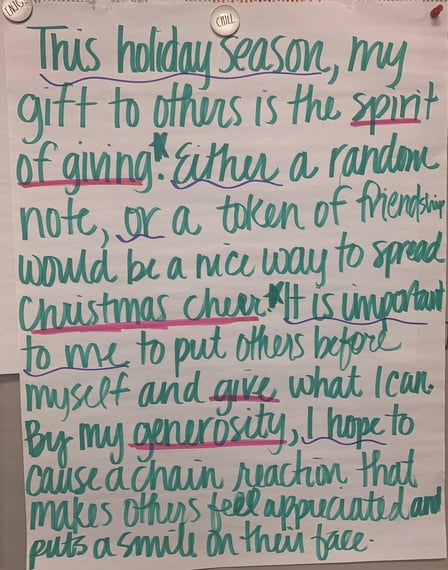 ENJOY
CHILL
This holiday season, my
gift to others is the spirit
of giving.* Either a random
note, or a token of friendship
would be a nice way to spread
Christmas cheer.* It is important
to me to put others before
myself and give what I can.
By my generosity, I hope to
cause a chain reaction that
makes others feel appreciated and
puts a smile on their face.